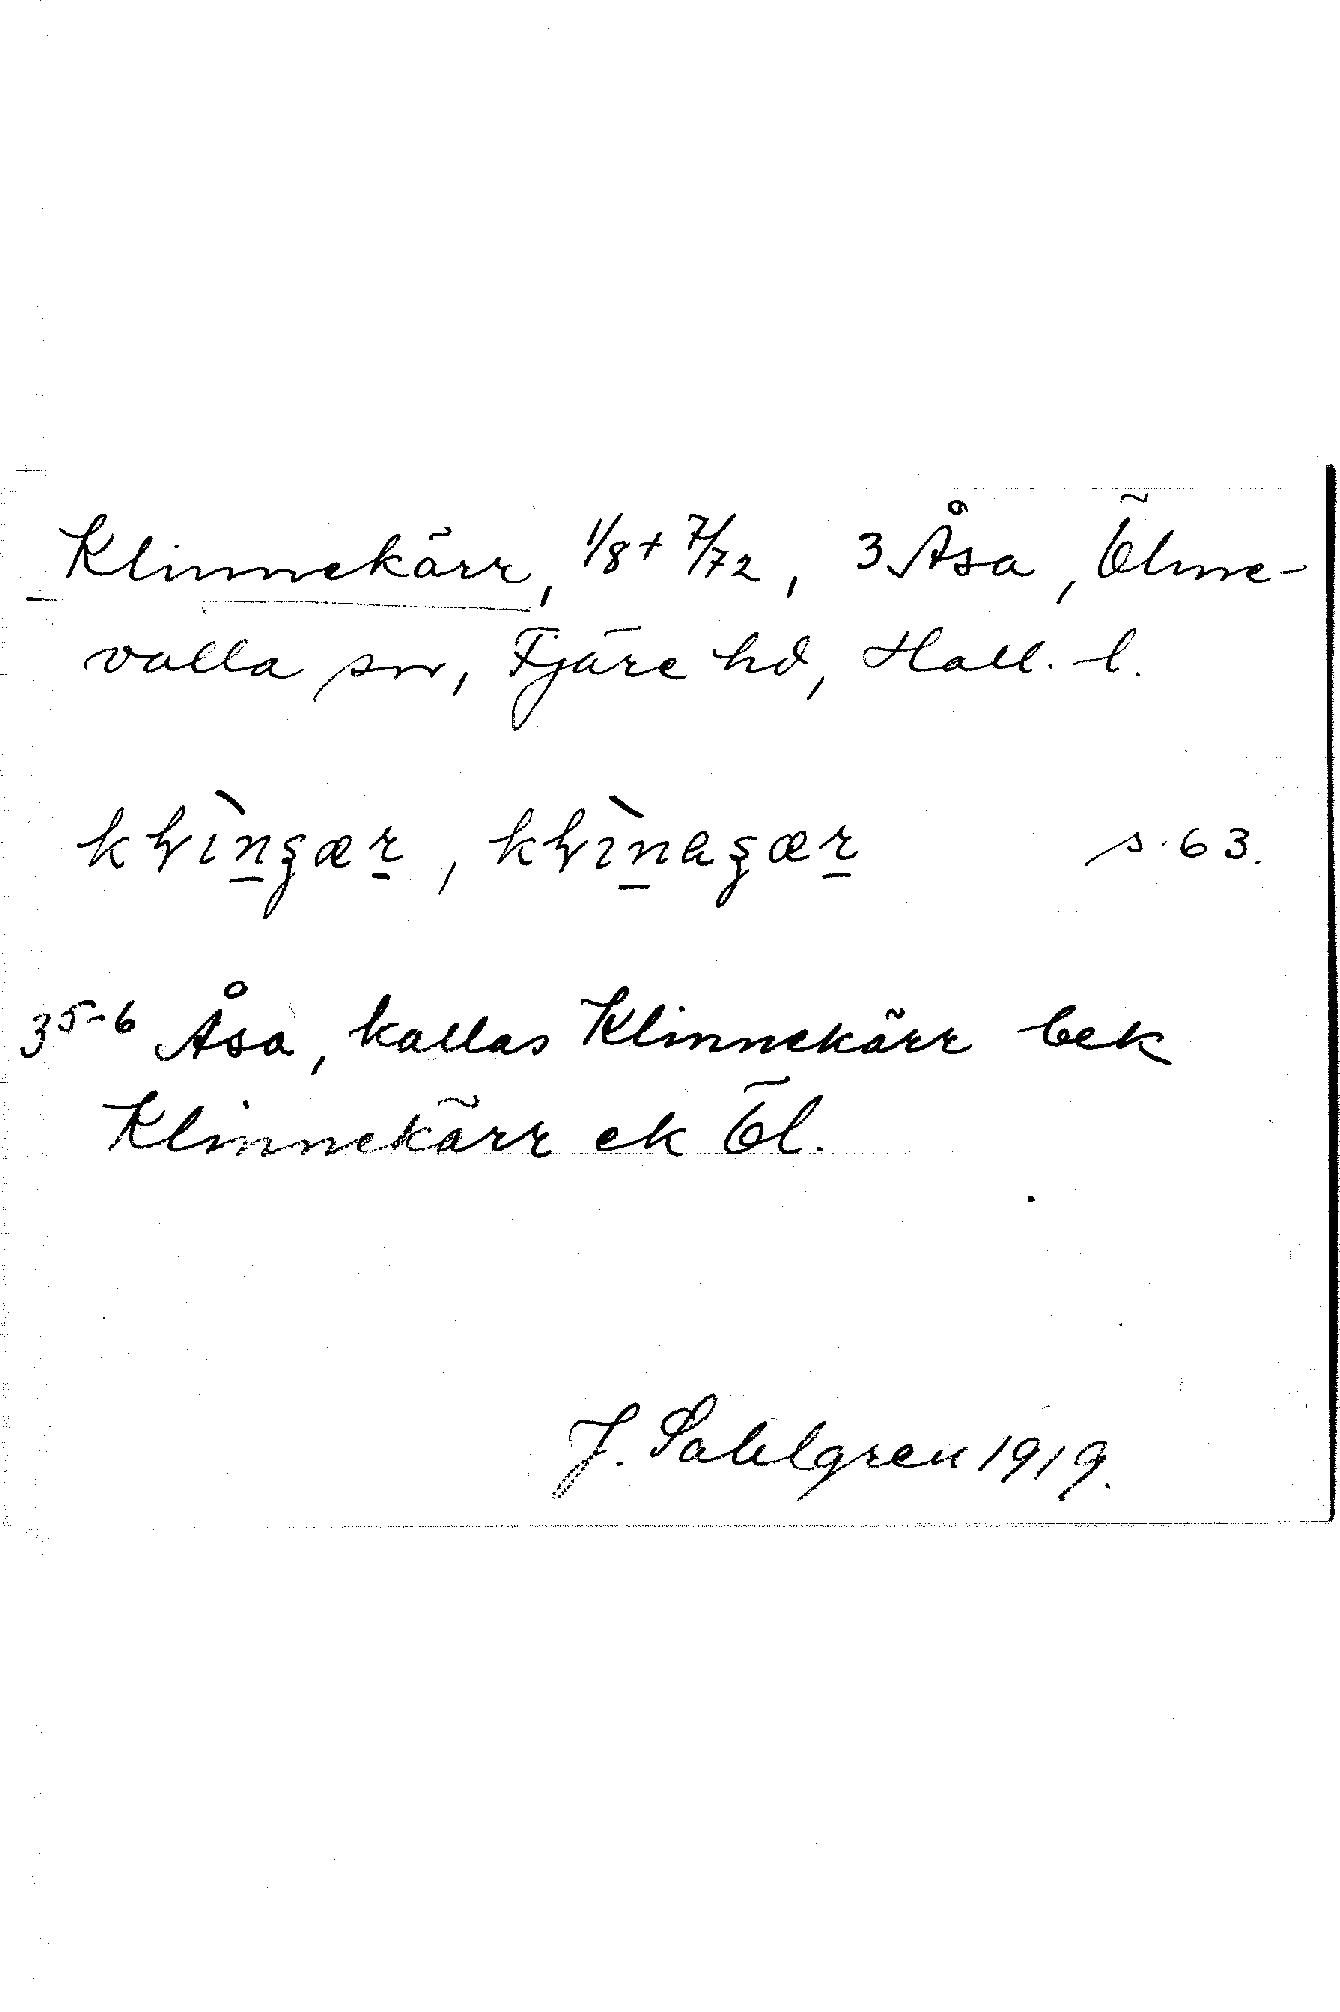 Klinnekärr, 1/8 + 7/72, 3 Åsa, Ölme-
valla sn, Fjäre hd, Hall. l.
s. 63.
3⁵⁻⁶ Åsa, kallas Klinnekärr bek
Klinnekärr ek Öl.
J. Sahlgren 1919.